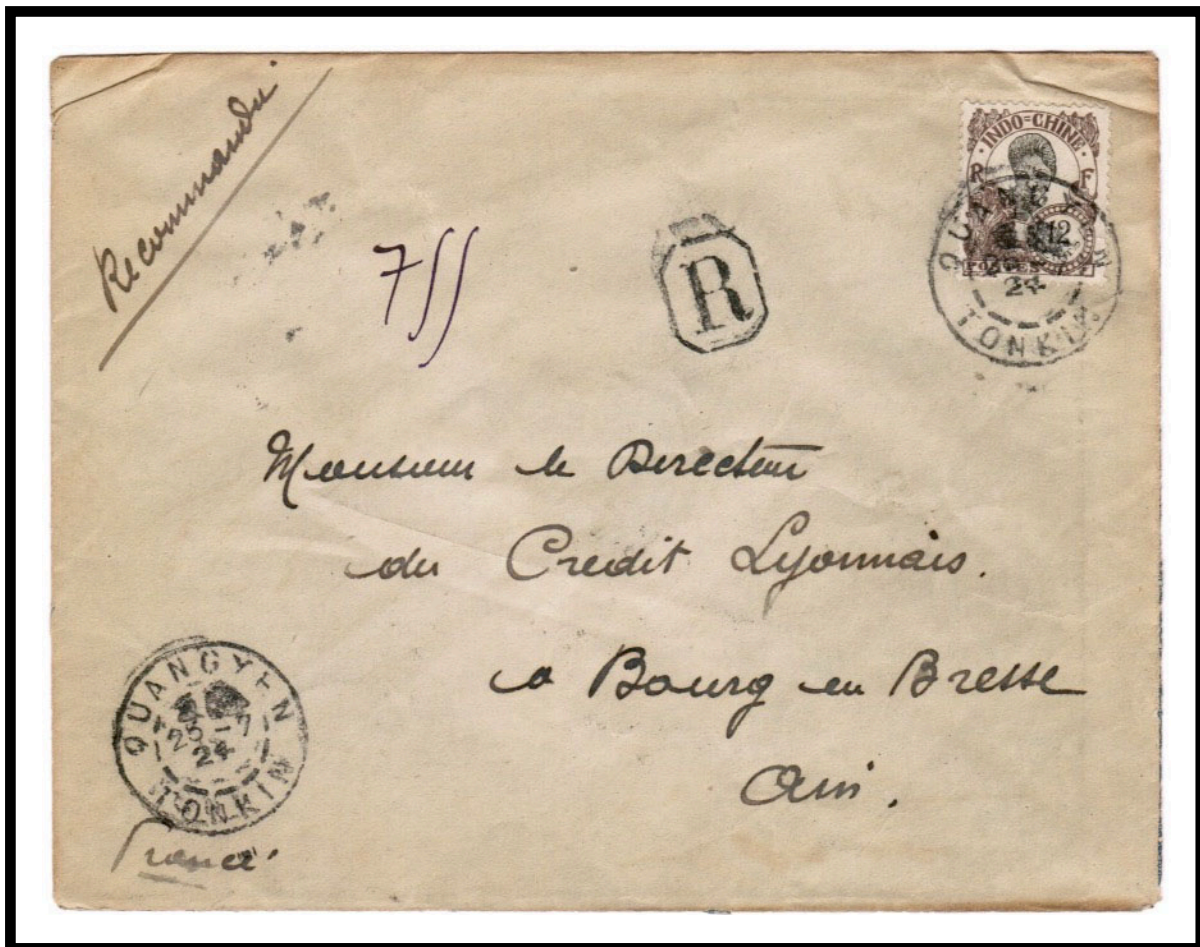 Recommandé
INDO=CHINE
R F
12
QUANGYEN
24
TONKIN
755
R
Monsieur le Directeur
du Credit Lyonnais.
a Bourg en Bresse
Ain.
QUANGYEN
25-7
24
TONKIN
France